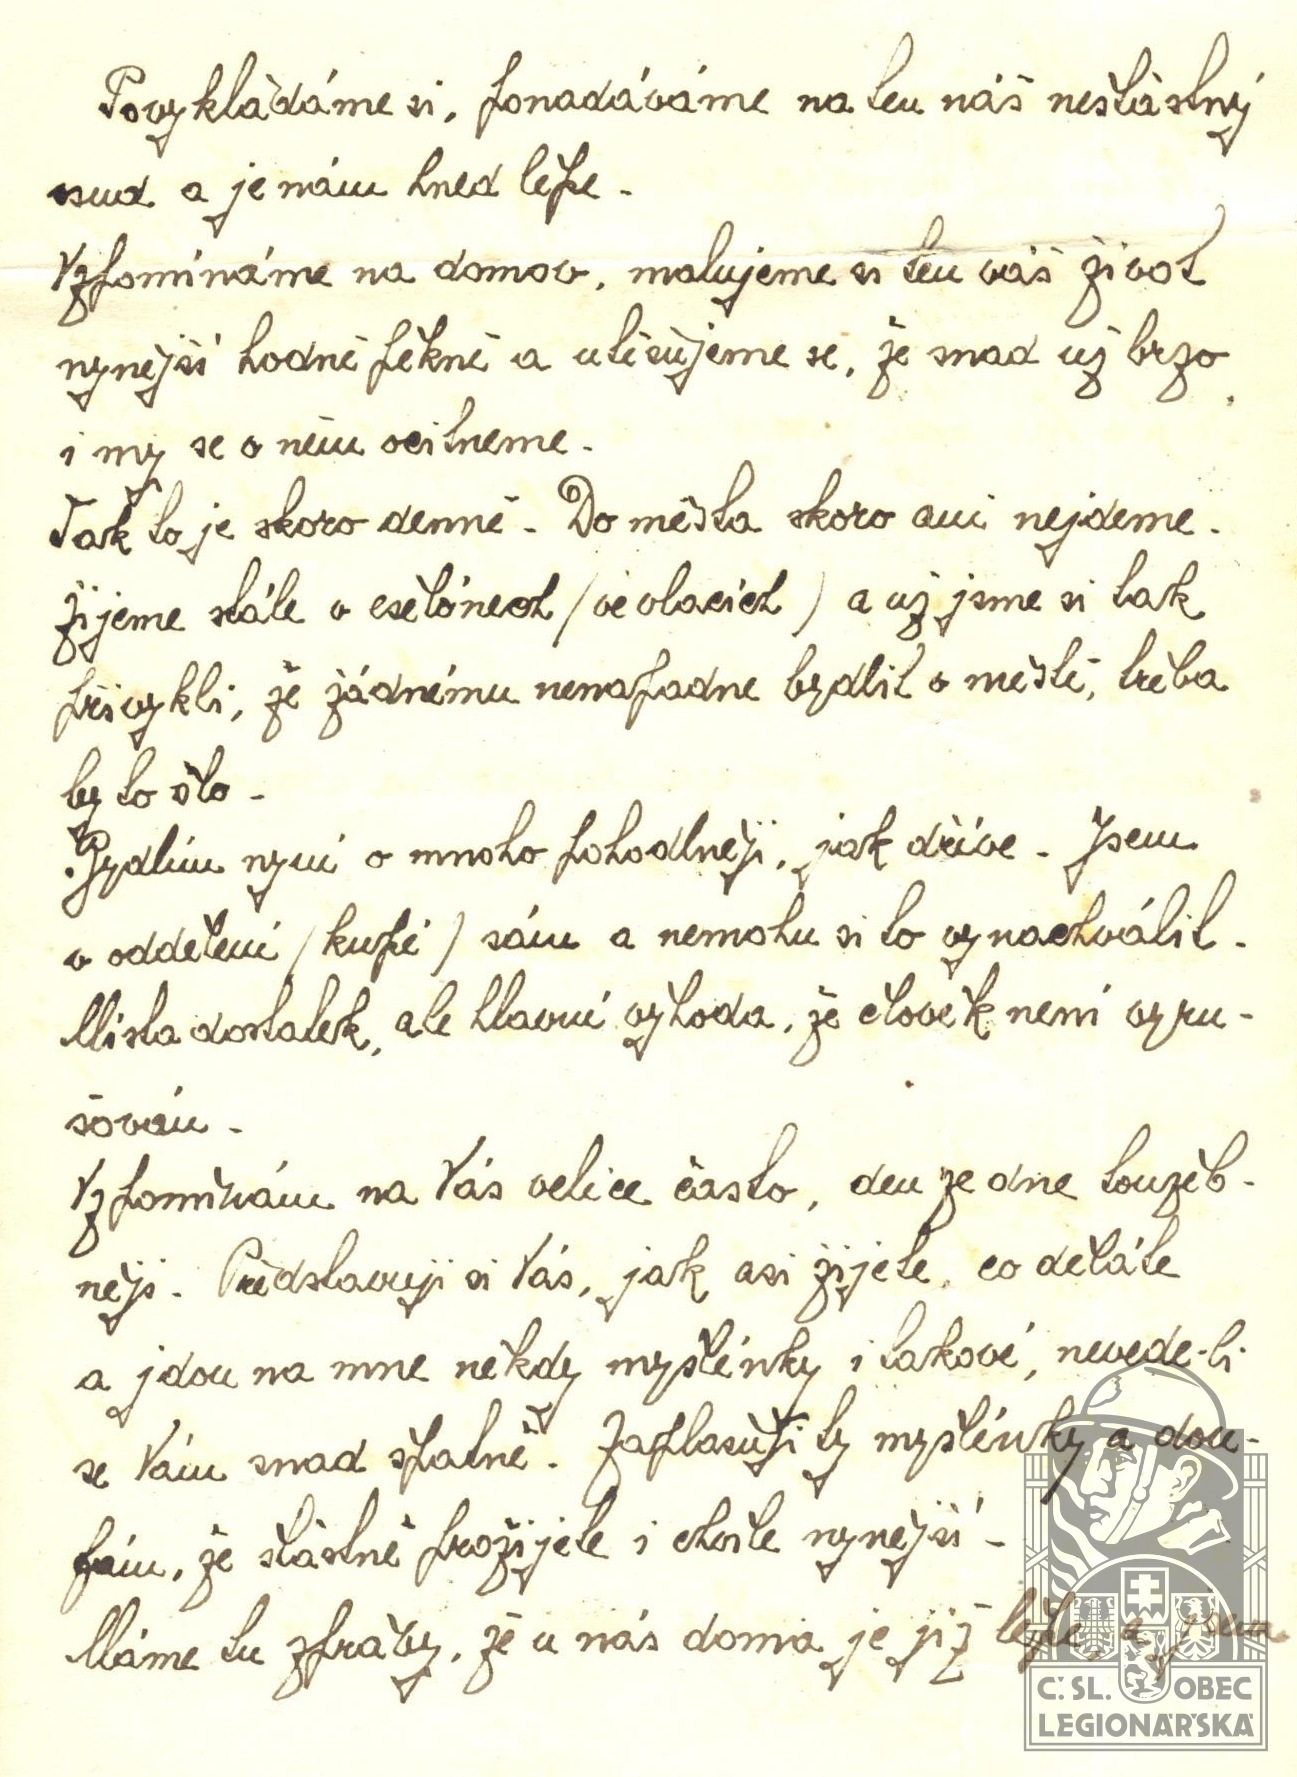 Povykládáme si, ponadáváme na ten náš nešťastný
osud a je nám hned lépe.
Vzpomínáme na domov, malujeme si ten váš život
nynější hodně pěkně a utěšujeme se, že snad už brzo
i my se v něm ocitneme.
Tak to je skoro denně. Do města skoro ani nejdeme.
Žijeme stále v ešelónech (ve vlacích) a už jsme si tak
přivykli, že žádnému nenapadne bydlit v městě, třeba
by to šlo.
Bydlím nyní o mnoho pohodlněji, jak dříve. Jsem
v oddělení (kupé) sám a nemohu si to vynachválit.
Místa dostatek, ale hlavní výhoda, že člověk není vyru-
šován.
Vzpomínám na Vás velice často, den ze dne toužeb-
něji. Představuji si Vás, jak asi žijete, co děláte
a jdou na mne někdy myšlénky i takové, nevede-li
se Vám snad špatně. Zaplašuji ty myšlénky a dou-
fám, že šťastně prožijete i chvíle nynější.
Máme tu zprávy, že u nás doma je již lépe, a jsem
Č. SL. OBEC
LEGIONÁŘSKÁ